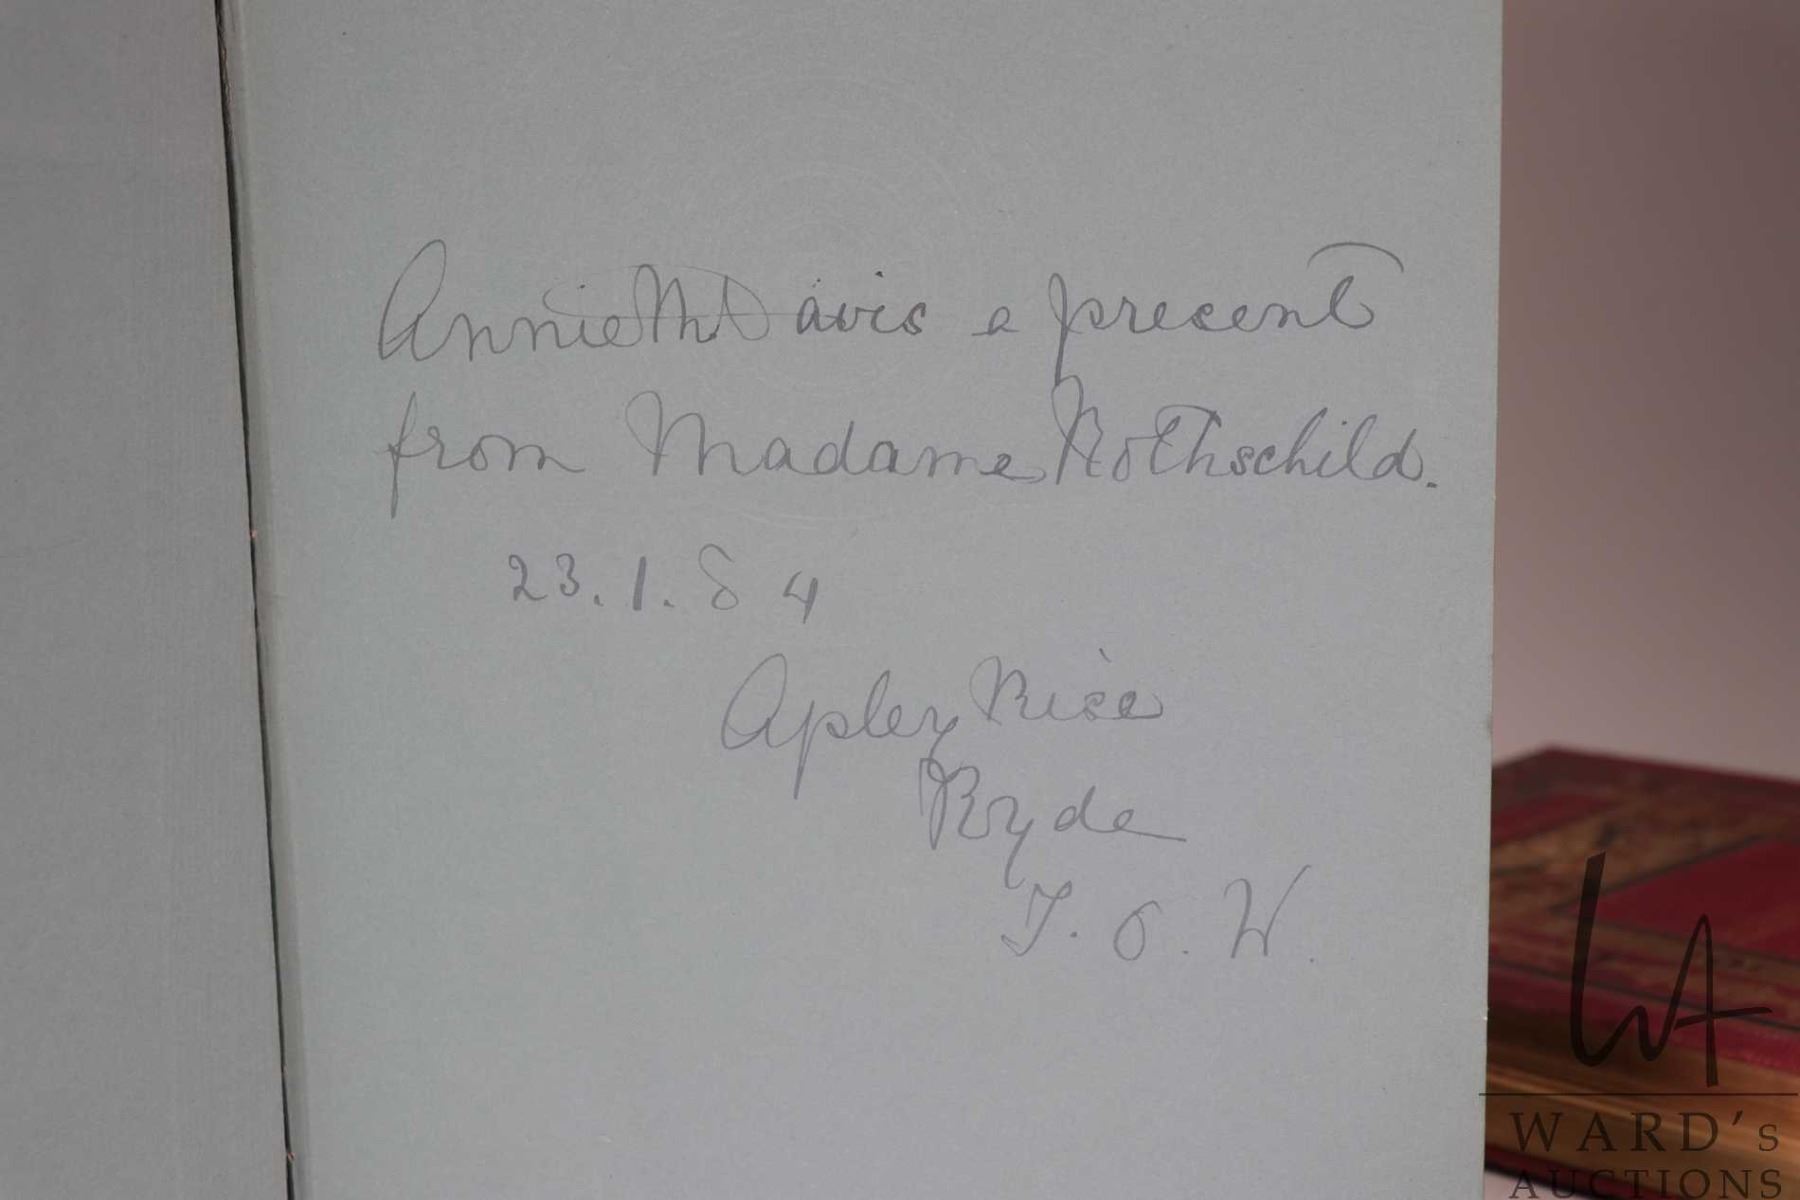 Annie M Davis a present
from Madame Rothschild.
23.1.84
Apley Rise
Ryde
I. O. W.
WA
WARD's
AUCTIONS